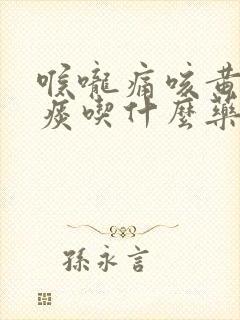 喉嚨痛咳黃
痰喫什麼藥
孫永言